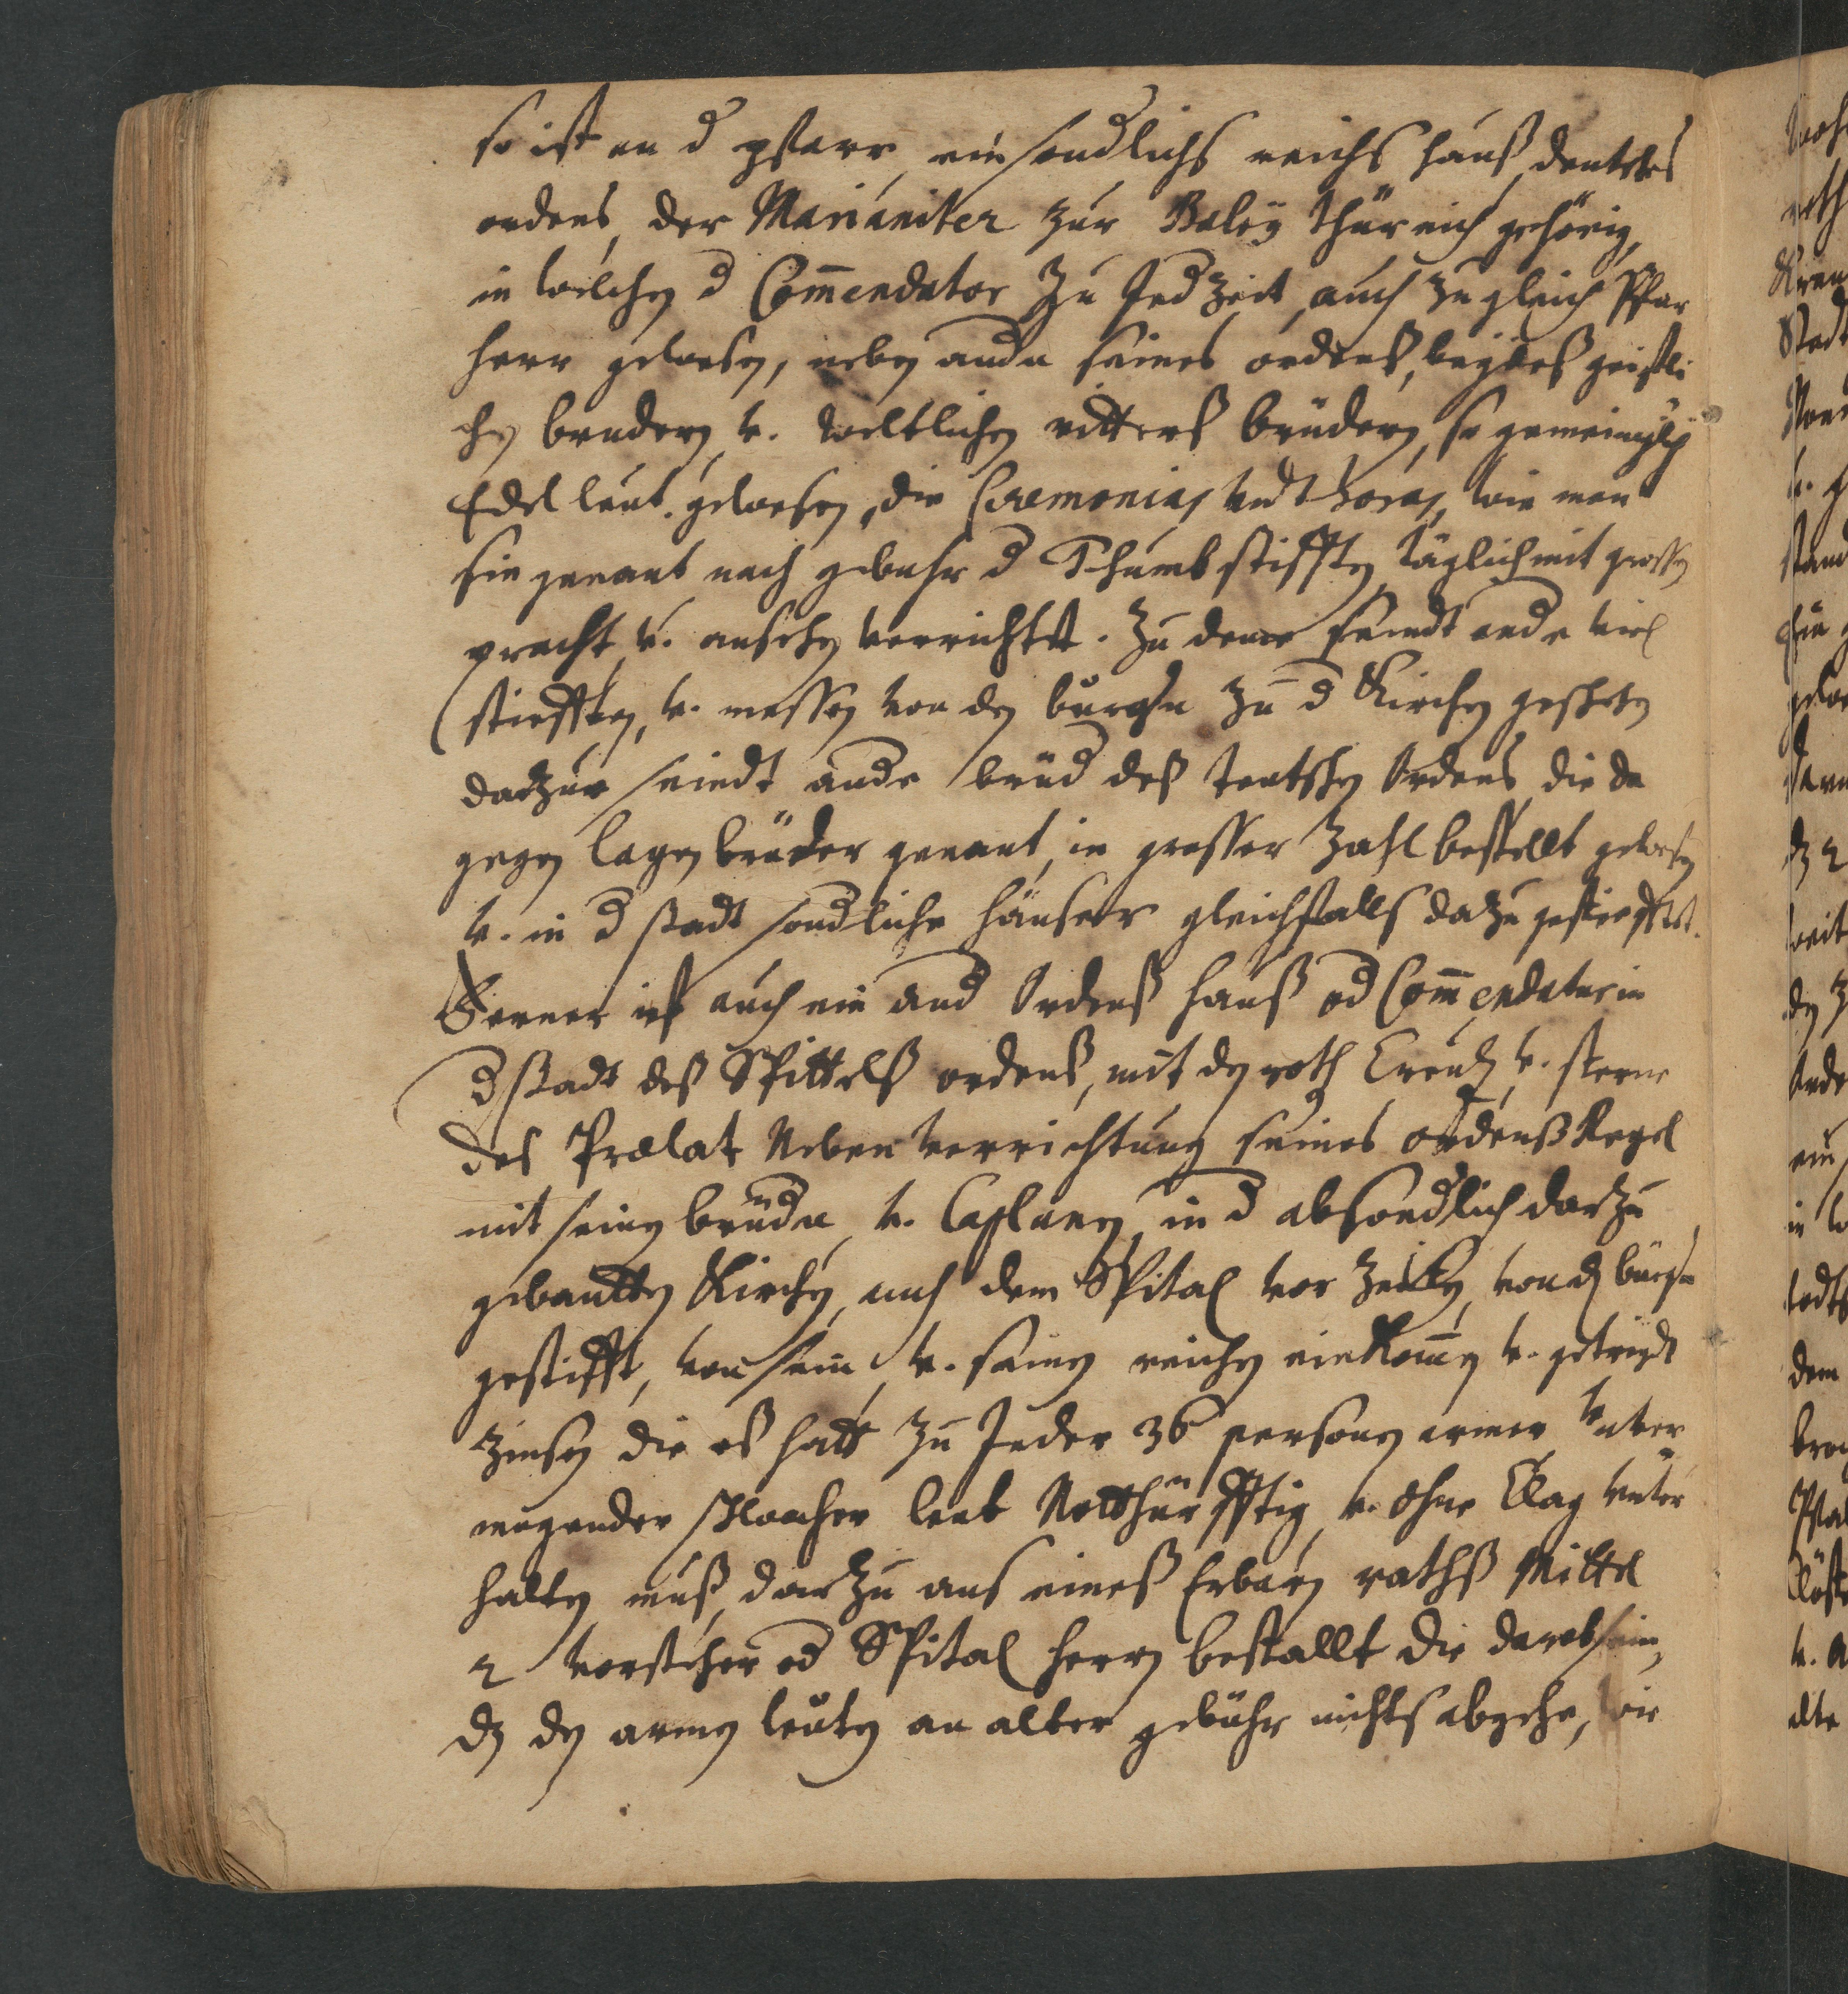 so ist an d pfarr, ein sondlichs reichs hauß deutshes
ordens, der Marianiter zur Baley thür nich gehörig,
in welchen d Com̄endator zu Jed Zeit, auch zu gleich Pfar
herr gewesen, neben andn seines ordens, beydes geistli
chen brudern, v. weltlichen ritters brüdern, so gemeinglich
Edel leut. gewesen, die Ceremonias undt horas, wie man
sie genant nach gebuhr d Thumbstifften täglich mit grossen
pracht v. ansehen verrichtett. Zu deme seindt ande viel
stiefften, v. messen von den burgrn zu d Kirchen geschehen
darzue seindt ande brüd deß teutshen Ordens, die da
gegen layen brüder genant, in grosser Zahl bestellt gewesen
v. in d stadt sondliche häuser gleichfalls dazu gestiefftet.
Ferner ist auch ein and Ordenß hauß od Com̄endatur in
d stadt deß Spittelß ordenß, mit den roth Creutz v. sterne
des Prælat Neben verrichtung seines ordenß Regel
mit seinen brüdrn v. Caplanen, in d absondlich darzu
gebautten Kirchen, auch dem Spital vor Zeitten, von den bürgrn
gestifft, von sein v. seinen reichen einkom̄en v. getreydt
zinsen die es hatt zu Jeder 36 personen armer Unver
mögender schwacher leut Notthürfftig, v. ohne Clag unter
halten muß, darzu aus eineß Erbarn rathß Mittel
2 vorsteher od Spital herrn bestallt die darob sein,
dz den armen leuten an alter gebühr nichts abgehe, wie